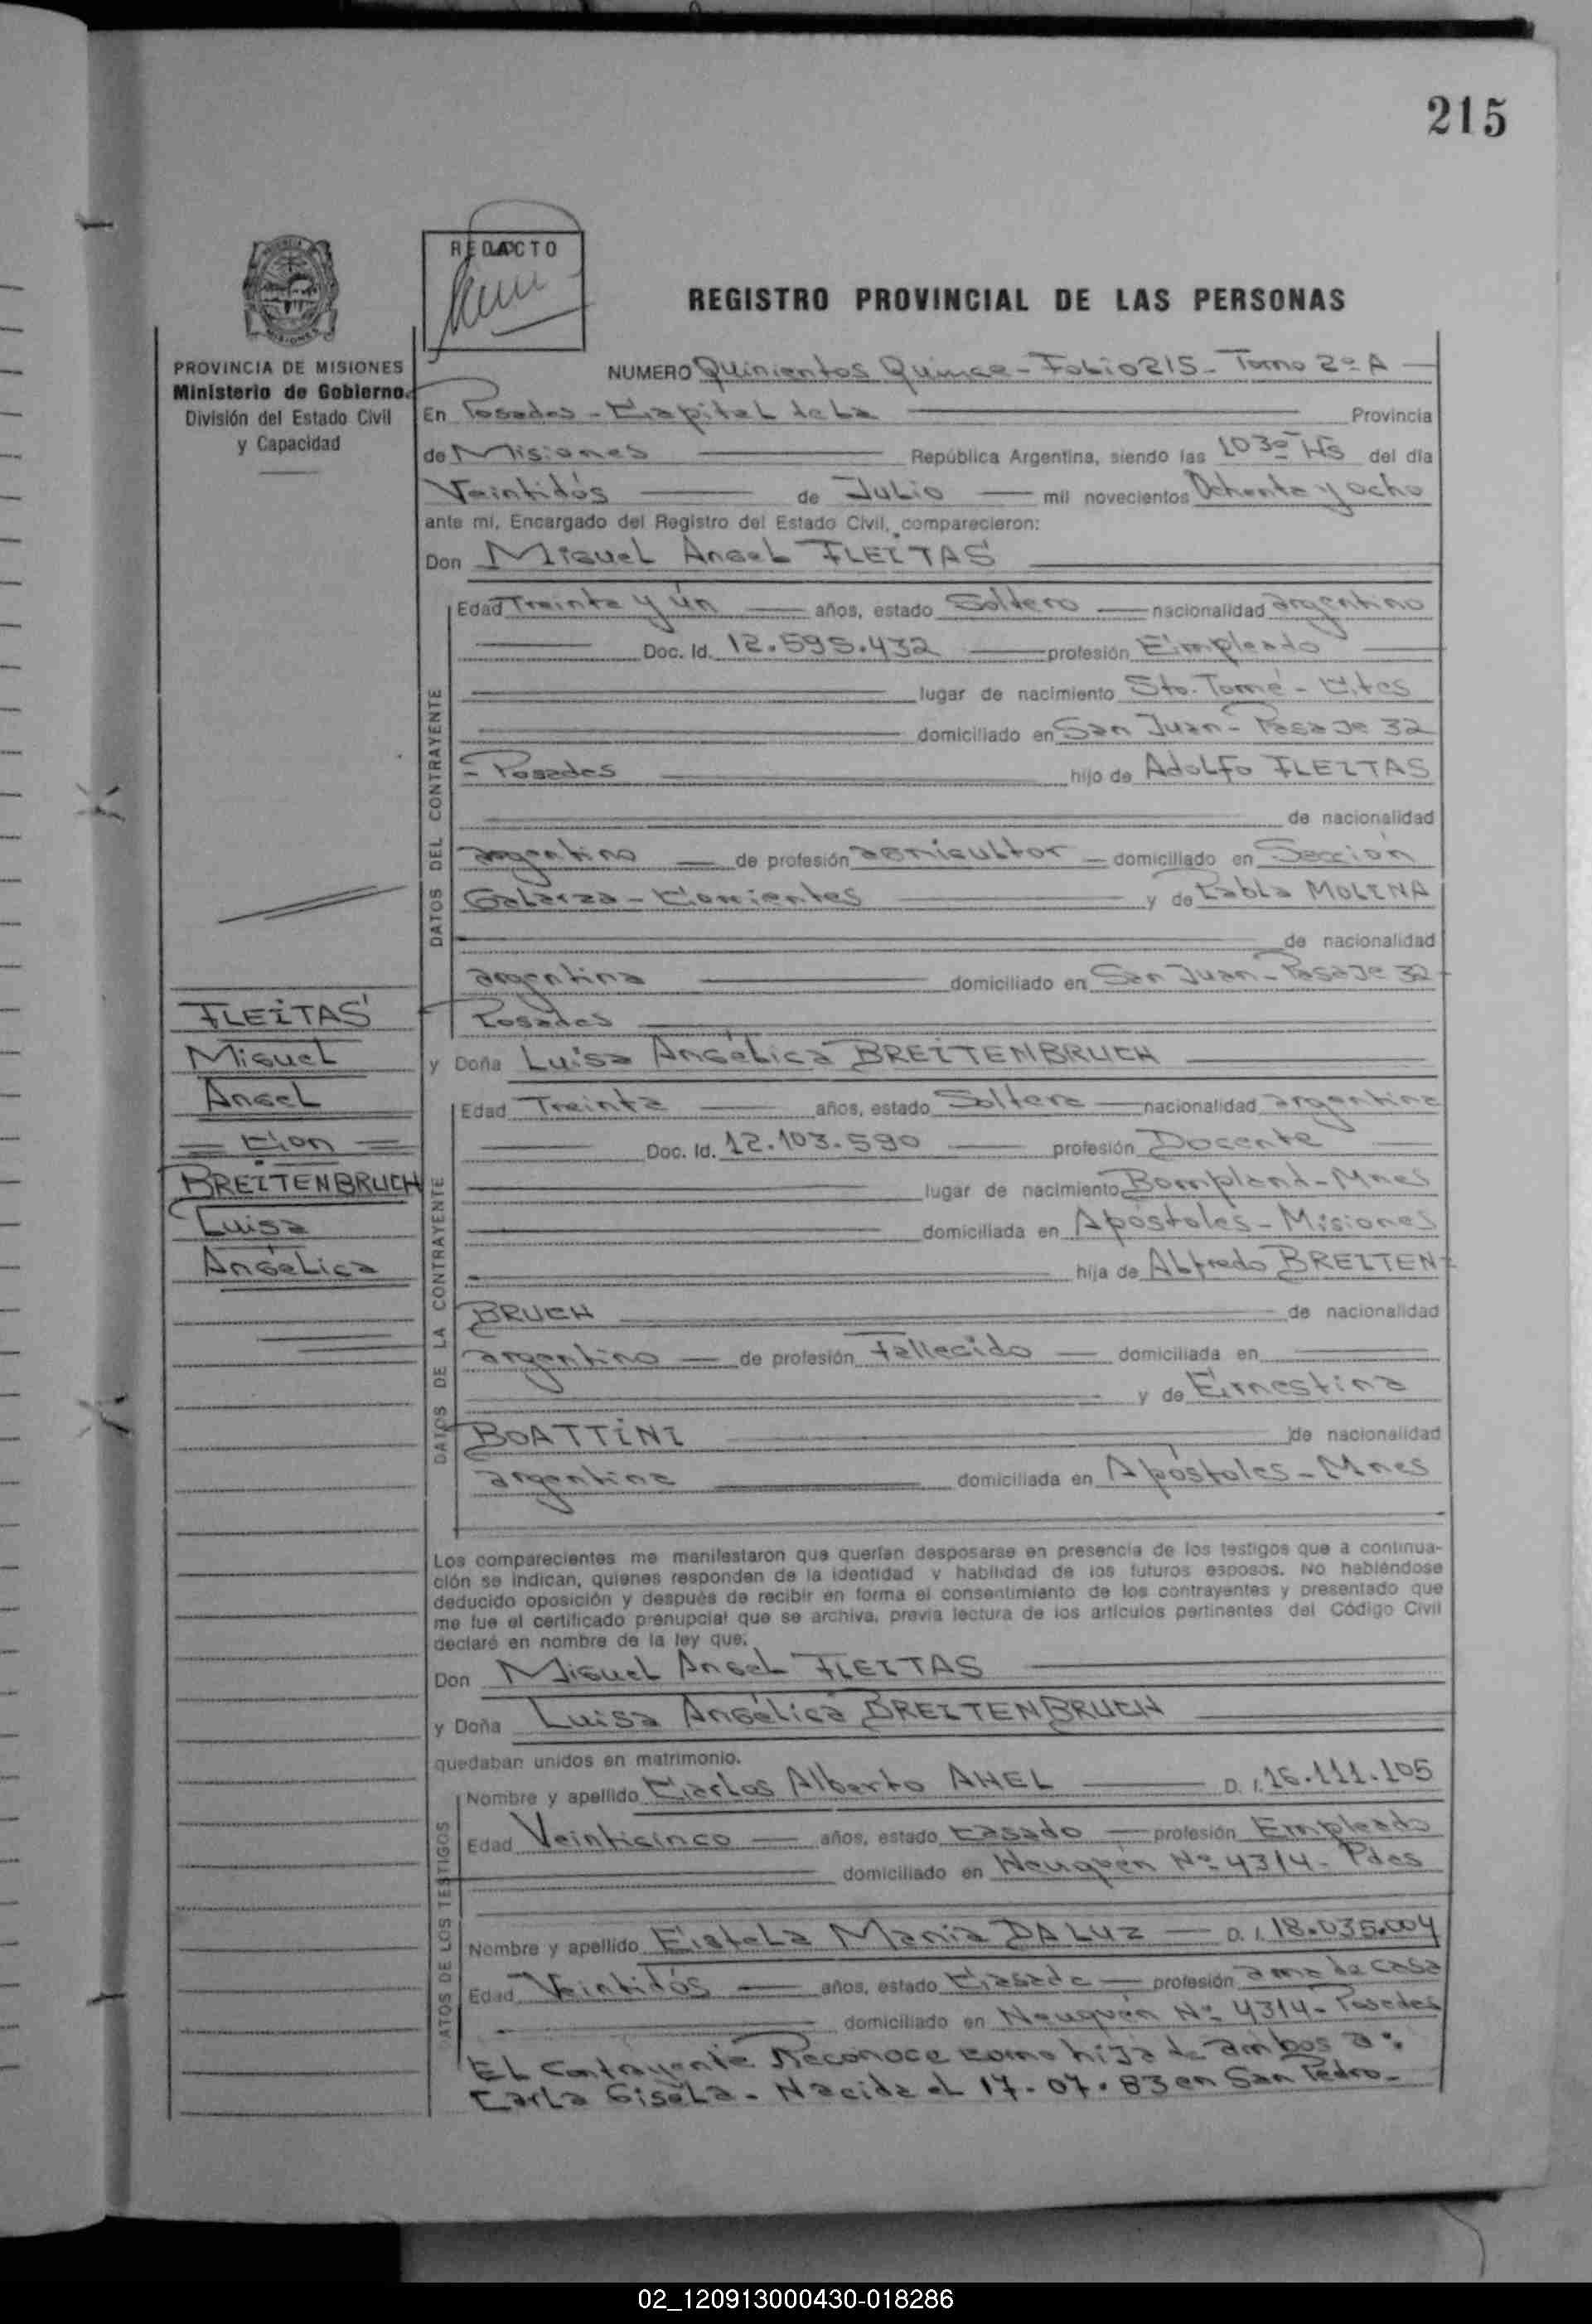 215
REDACTO
REGISTRO PROVINCIAL DE LAS PERSONAS
PROVINCIA DE MISIONES
Ministerio de Gobierno
División del Estado Civil
y Capacidad
NUMERO Quinientos Quince - Folio 215 - Tomo 2º A
En Posadas - Capital de La Provincia
de Misiones República Argentina, siendo las 10 30 Hs del día
Veintidós de Julio mil novecientos Ochenta y ocho
ante mí, Encargado del Registro del Estado Civil, comparecieron:
Don Miguel Angel FLEITAS
DATOS DEL CONTRAYENTE
Edad Treinta y ún años, estado Soltero nacionalidad argentino
Doc. Id. 12.595.432 profesión Empleado
lugar de nacimiento Sto. Tomé - Ctes
domiciliado en San Juan - Pasaje 32
- Posadas hijo de Adolfo FLEITAS
de nacionalidad
argentino de profesión agricultor domiciliado en Sección
Galarza - Corrientes y de Pabla MOLINA
de nacionalidad
argentina domiciliado en San Juan - Pasaje 32
Posadas
FLEITAS
Miguel
Angel
= Con =
BREITENBRUCH
Luisa
Angélica
y Doña Luisa Angélica BREITENBRUCH
DATOS DE LA CONTRAYENTE
Edad Treinta años, estado Soltera nacionalidad argentina
Doc. Id. 12.103.590 profesión Docente
lugar de nacimiento Bompland - Mnes
domiciliada en Apóstoles - Misiones
hija de Alfredo BREITEN-
BRUCH de nacionalidad
argentino de profesión Fallecido domiciliada en
y de Ernestina
BOATTINI de nacionalidad
argentina domiciliada en Apóstoles - Mnes
Los comparecientes me manifestaron que querían desposarse en presencia de los testigos que a continua-
ción se indican, quienes responden de la identidad y habilidad de los futuros esposos. No habiéndose
deducido oposición y después de recibir en forma el consentimiento de los contrayentes y presentado que
me fue el certificado prenupcial que se archiva, previa lectura de los artículos pertinentes del Código Civil
declaré en nombre de la ley que:
Don Miguel Angel FLEITAS
y Doña Luisa Angélica BREITENBRUCH
quedaban unidos en matrimonio.
DATOS DE LOS TESTIGOS
Nombre y apellido Carlos Alberto AHEL D. I. 16.111.105
Edad Veinticinco años, estado Casado profesión Empleado
domiciliado en Neuquén Nº 4314 - Pdas
Nombre y apellido Estela Maria DA LUZ D. I. 18.035.004
Edad Veintidós años, estado Casada profesión ama de casa
domiciliado en Neuquén Nº 4314 - Posadas
El Contrayente Reconoce como hija de ambos a:
Carla Gisela - Nacida el 17.07.83 en San Pedro -
02_120913000430-018286